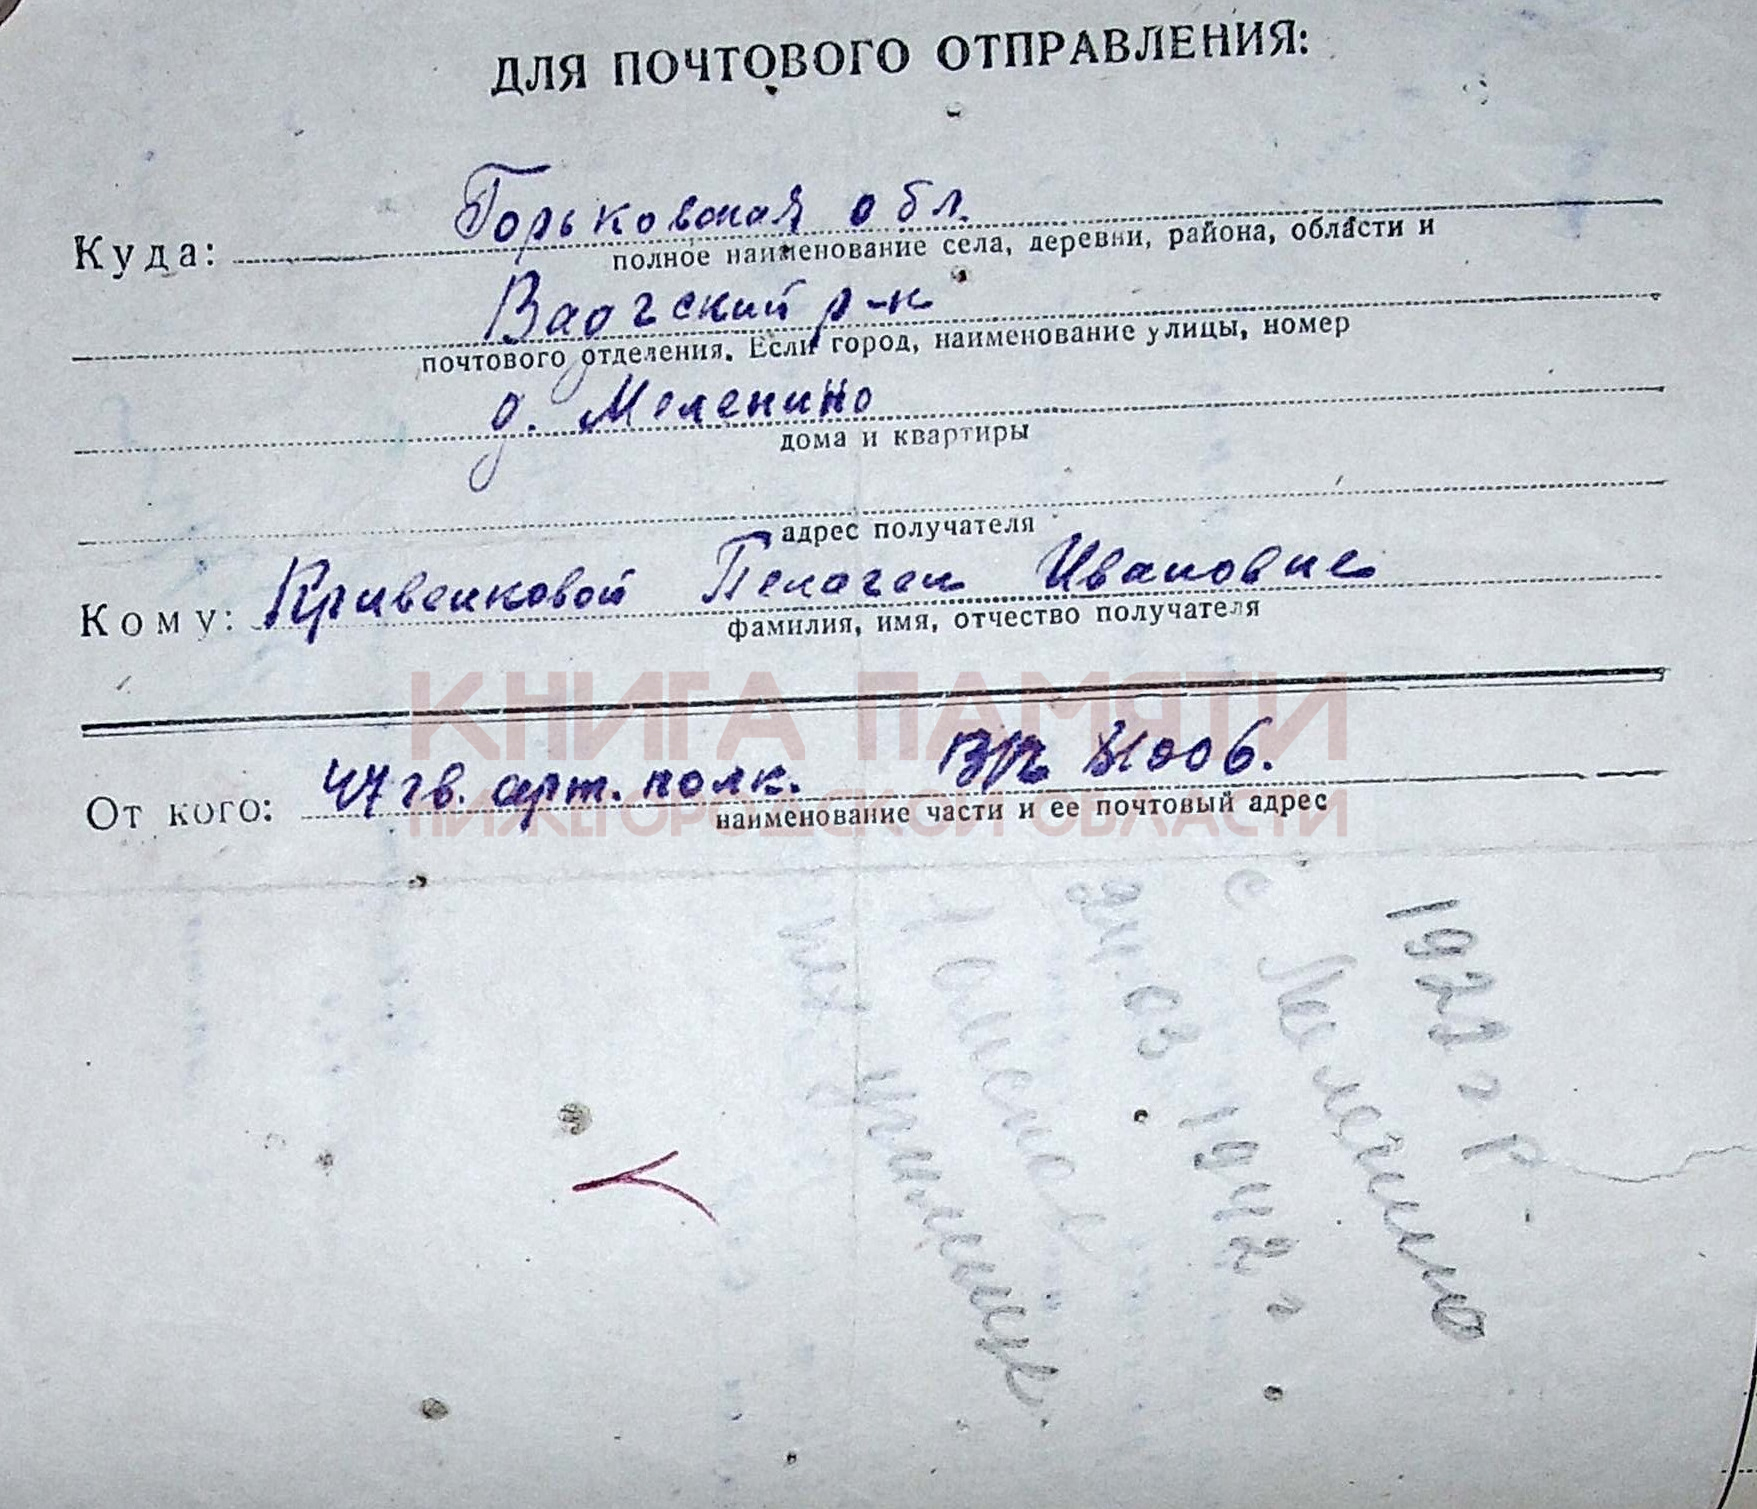 ДЛЯ ПОЧТОВОГО ОТПРАВЛЕНИЯ:
Куда: Горьковская обл.
полное наименование села, деревни, района, области и
Ваогский р-н
почтового отделения. Если город, наименование улицы, номер
д. Меленино
дома и квартиры
адрес получателя
Кому: Кривенковой Пелагеи Ивановне
фамилия, имя, отчество получателя
КНИГА ПАМЯТИ
От кого: 47 гв. арт. полк.
наименование части и ее почтовый адрес
НИЖЕГОРОДСКОЙ ОБЛАСТИ
1922 г р
с Меленино
24.03 1942 г